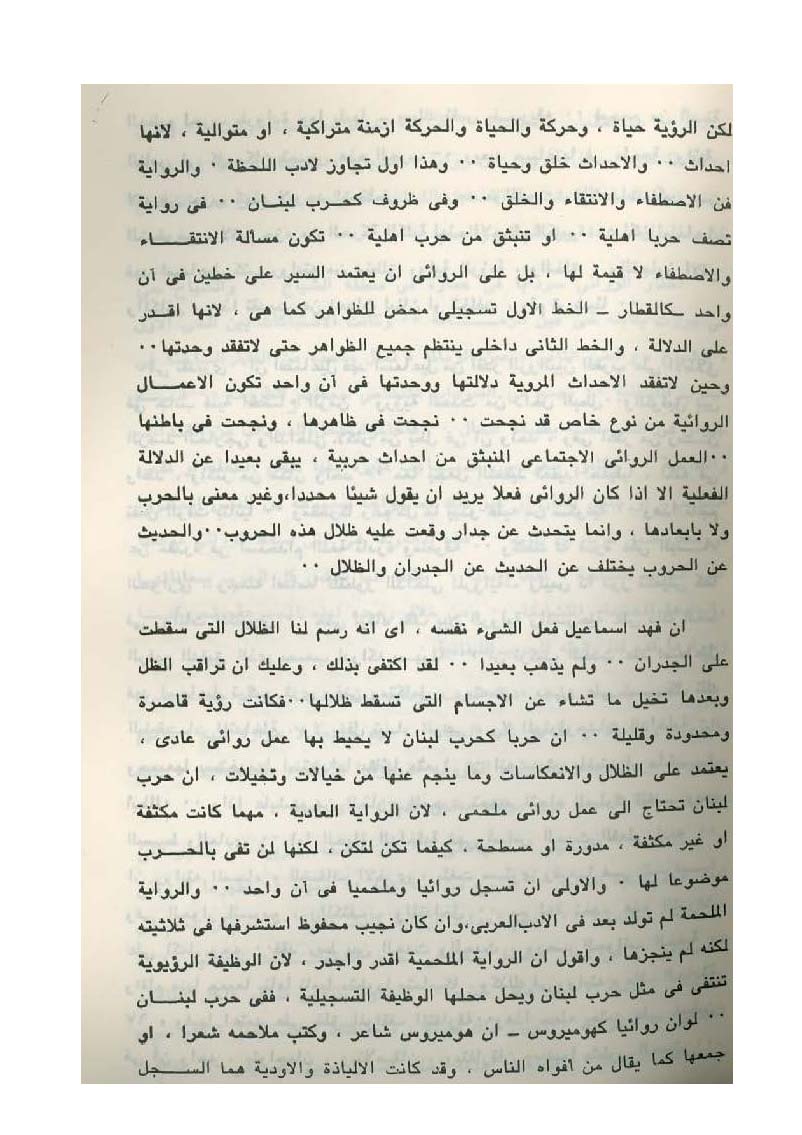 لكن الرؤية حياة ، وحركة والحياة والحركة ازمنة متراكبة ، او متوالية ، لانها
احداث ٠٠ والاحداث خلق وحياة ٠٠ وهذا اول تجاوز لادب اللحظة ٠ والرواية
فن الاصطفاء والانتقاء والخلق ٠٠ وفى ظروف كحرب لبنـان ٠٠ فى رواية
تصف حربا اهلية ٠٠ او تنبثق من حرب اهلية ٠٠ تكون مسألة الانتقـــاء
والاصطفاء لا قيمة لها ، بل على الروائى ان يعتمد السير على خطين فى آن
واحد ـكالقطار ـ الخط الاول تسجيلى محض للظواهر كما هى ، لانها اقـدر
على الدلالة ، والخط الثانى داخلى ينتظم جميع الظواهر حتى لاتفقد وحدتها٠٠
وحين لاتفقد الاحداث المروية دلالتها ووحدتها فى آن واحد تكون الاعمـــال
الروائية من نوع خاص قد نجحت ٠٠ نجحت فى ظاهرها ، ونجحت فى باطنها
٠٠العمل الروائى الاجتماعى المنبثق من احداث حربية ، يبقى بعيدا عن الدلالة
الفعلية الا اذا كان الروائى فعلا يريد ان يقول شيئا محددا،وغير معنى بالحرب
ولا بابعادها ، وانما يتحدث عن جدار وقعت عليه ظلال هذه الحروب٠٠والحديث
عن الحروب يختلف عن الحديث عن الجدران والظلال ٠٠
ان فهد اسماعيل فعل الشىء نفسه ، اى انه رسم لنا الظلال التى سقطت
على الجدران ٠٠ ولم يذهب بعيدا ٠٠ لقد اكتفى بذلك ، وعليك ان تراقب الظل
وبعدها تخيل ما تشاء عن الاجسام التى تسقط ظلالها٠٠فكانت رؤية قاصرة
ومحدودة وقليلة ٠٠ ان حربا كحرب لبنان لا يحيط بها عمل روائى عادى ،
يعتمد على الظلال والانعكاسات وما ينجم عنها من خيالات وتخيلات ، ان حرب
لبنان تحتاج الى عمل روائى ملحمى ، لان الرواية العادية ، مهما كانت مكثفة
او غير مكثفة ، مدورة او مسطحة ، كيفما تكن لتكن ، لكنها لن تفى بالحـــرب
موضوعا لها ٠ والاولى ان تسجل روائيا وملحميا فى آن واحد ٠٠ والرواية
الملحمة لم تولد بعد فى الادب العربى،وان كان نجيب محفوظ استشرفها فى ثلاثيته
لكنه لم ينجزها ، واقول ان الرواية الملحمية اقدر واجدر ، لان الوظيفة الرؤيوية
تنتفى فى مثل حرب لبنان ويحل محلها الوظيفة التسجيلية ، ففى حرب لبنـــان
٠٠ لوان روائيا كهوميروس ـ ان هوميروس شاعر ، وكتب ملاحمه شعرا ، او
جمعها كما يقال من افواه الناس ، وقد كانت الالياذة والاودية هما الســـجل